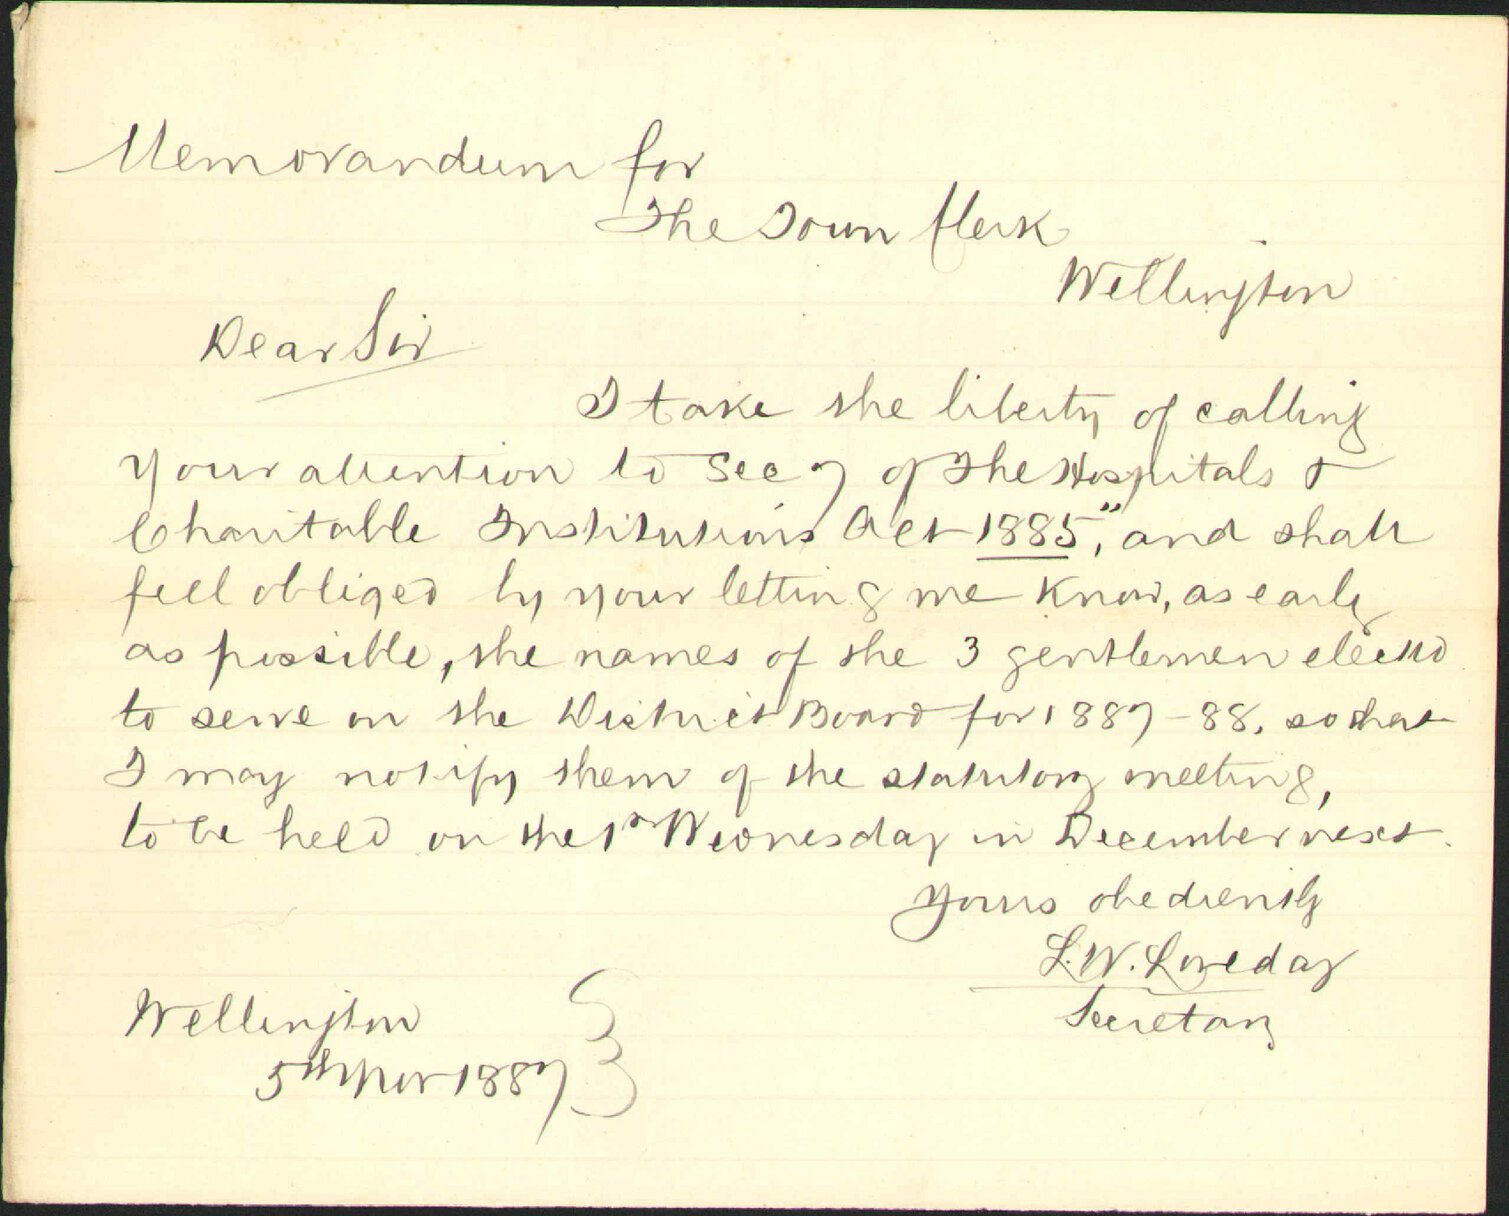 Memorandum for
The Town Clerk
Wellington
Dear Sir
I take the liberty of calling
your attention to Sec 7 of The Hospitals &
Charitable Institutions Act 1885", and shall
feel obliged by your letting me know, as early
as possible, the names of the 3 gentlemen elected
to serve on the District Board for 1887-88, so that
I may notify them of the statutory meeting,
to be held on the 1st Wednesday in December next.
Yours obediently
L.W. Loveday
Secretary
Wellington
5th Nov 1887